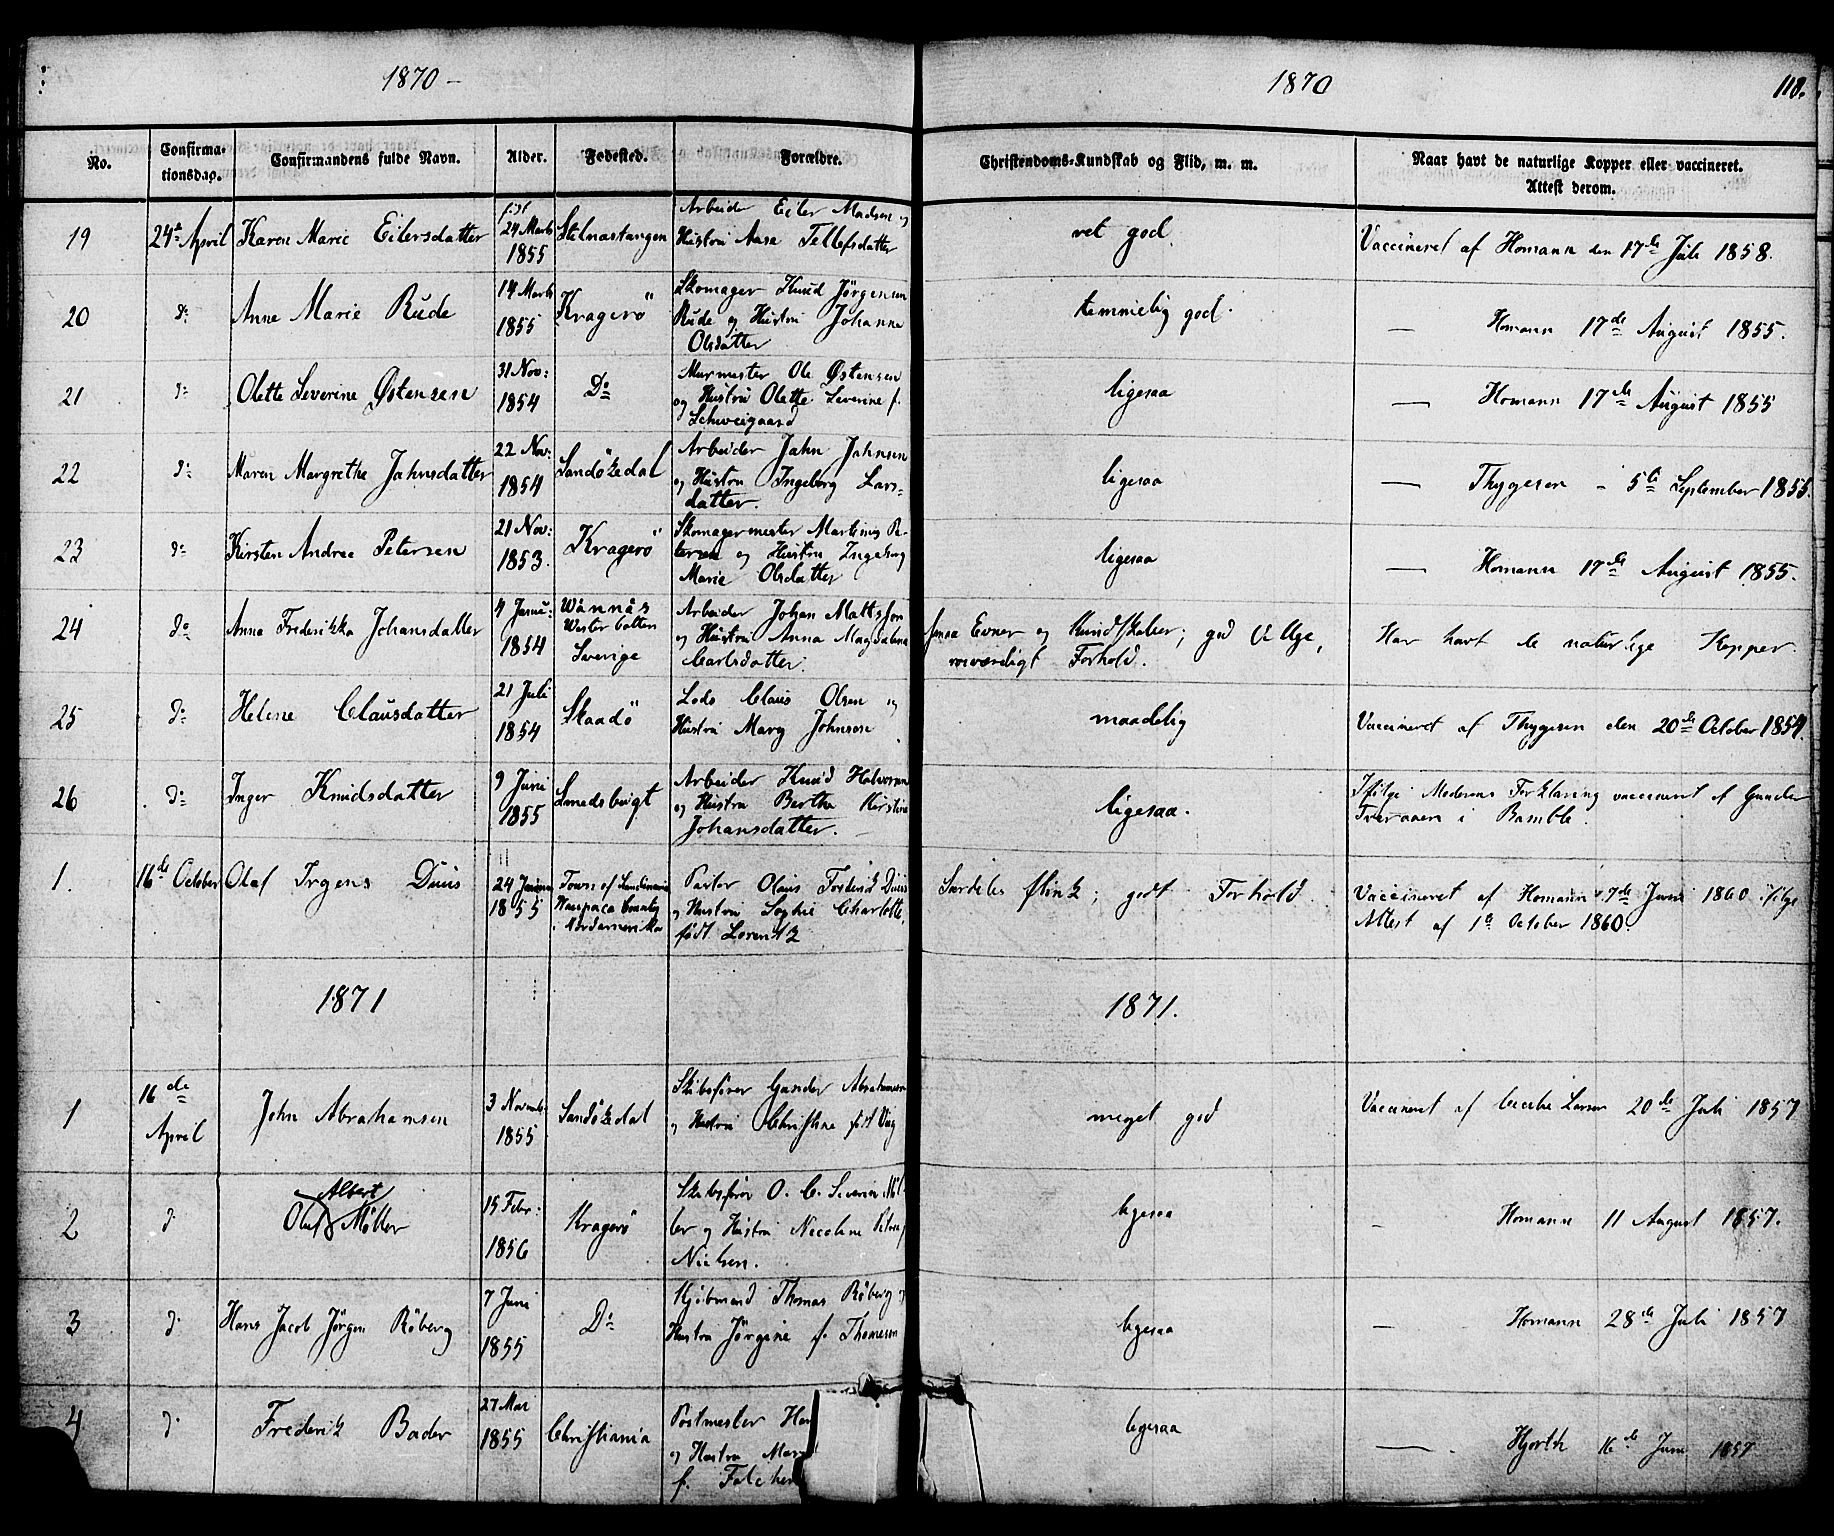 1870 –
1870
118.
No.
Confirma-
tionsdag.
Confirmandens fulde Navn.
Alder.
Fødested.
Forældre.
Christendoms-Kundskab og Flid, m. m.
Naar havt de naturlige Kopper eller vaccineret.
Attest derom.
19
24de April
Karen Marie Eilersdatter
født
24 Marts
1855
Stelnastangen
Arbeider Eiler Madsen og
Hustru Anne Tellefsdatter
ret god.
Vaccineret af Homann den 17de Juli 1858.
20
do
Anne Marie Rude
14 Marts
1855
Kragerö
Skomager Knud Jörgensen
Rude og Hustru Johanne
Olsdatter
temmelig god.
— Homann 17de August 1855.
21
do
Olette Severine Østensen
31 Nov:
1854
Do
Murmester Ole Østensen
og Hustru Olette Severine f.
Schweigaard
ligesaa
— Homann 17de August 1855
22
do
Maren Margrethe Jahnsdatter
22 Nov:
1854
Sandökedal
Arbeider Jahn Jahnsen
og Hustru Ingeborg Lars-
datter.
ligesaa
— Thygesen - 5te September 1855.
23
do
Kirsten Andrea Petersen
21 Nov:
1853.
Kragerö
Skomagermester Martinus Pe-
tersen og Hustru Ingeborg
Marie Olsdatter
ligesaa
— Homann 17de August 1855.
24
do
Anna Fredrikka Johansdatter
4 Janu:
1854
Wännäs
Wester botten
Sverige
Arbeider Johan Mattsson
og Hustru Anna Magdalena
Carlsdatter.
Evner og Kundskaber; god Flige,
rosværdigt Forhold.
Har havt de naturlige Kopper.
25
do
Helene Clausdatter
21 Juli
1854
Skaadö
Lods Claus Olsen og
Hustru Mary Johnsen
maadelig
Vaccineret af Thygesen den 20de October 1854.
26
do
Inger Knudsdatter
9 Juni
1855
Smedsbugt
Arbeider Knud Halvorsen
og Hustru Bertha Kirstine
Johansdatter.
ligesaa.
Ifølge Moderens Forklaring vaccineret af Gunder
Tveraaen i Bamble.
1.
16de October
Olaf Irgens Duus
24 Januar
1855
Town of Scandinavia
Waupaca County
Nordamerika
Pastor Olaus Frederik Duus
og Hustru Sophie Charlotte,
født Lorentz
Særdeles flink; godt Forhold.
Vaccineret af Homann 7de Juni 1860 ifølge
Attest af 1ste October 1860.
1871
1871.
1
16de
April
John Abrahamsen
3 Novemb.
1855
Sandökedal
Skibsfører Gunder Abrahamsen
og Hustru Christine født
meget god
Vaccineret af Larsen 20de Juli 1857
2
do
Albert
Oluf Möller
15 Febr:
1856
Kragerö
Skibsfører O. C. Severin Möl-
ler og Hustru Nicoline Petrea f.
Nielsen.
ligesaa
- Homann 11 August 1857.
3
do
Hans Jacob Jörgen Röberg
7 Juni
1855
Do
Kjöbmand Thomas Röberg og
Hustru Jörgine f. Thomesen
ligesaa
— Homann 28de Juli 1857
4
do
Frederik Bader
27 Mai
1855
Christiania
Postmester
og Hustru
f.
ligesaa
— Hjorth 16de Juni 1857